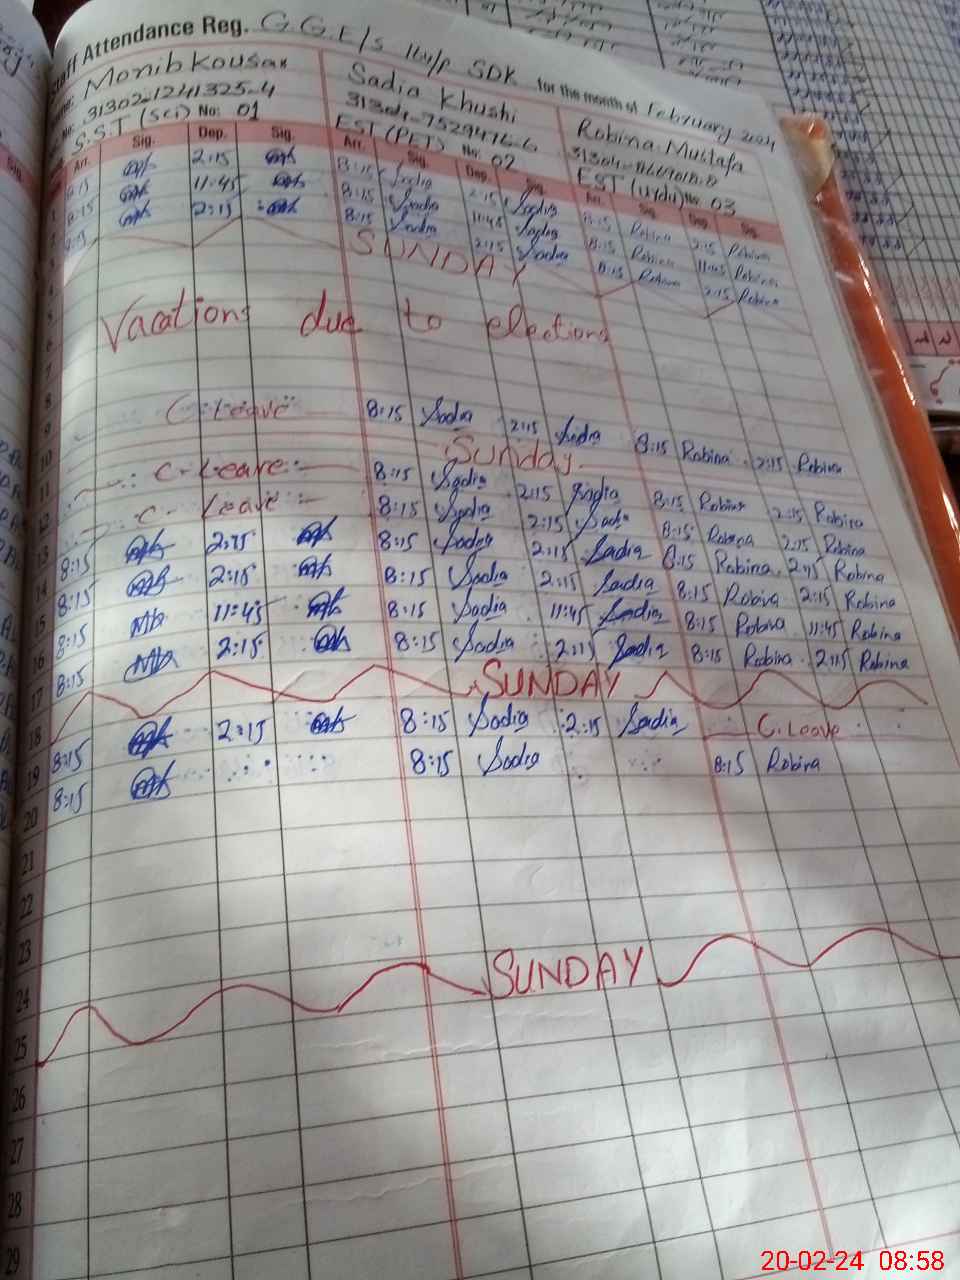 Staff Attendance Reg. G.G.E/S 114/P SDK for the month of February 2024
Monib Kousar Sadia Khushi Robina Mustafa
31302-1241325-4 31304-7529476-6
S.S.T (Sci) No: 01 EST (PET) No: 02 EST (Urdu) No: 03
Arr. Sig. Dep. Sig. Arr. Sig. Dep. Sig. Arr. Sig. Dep. Sig.
8:15 2:15 8:15 Sadia 2:15 Sadia 8:15 Robina 2:15 Robina
8:15 11:45 8:15 Sadia 11:45 Sadia 8:15 Robina 11:45 Robina
8:15 2:15 8:15 Sadia 2:15 Sadia 8:15 Robina 2:15 Robina
SUNDAY
5
Vacations due to elections
6
7
8
9 C. Leave 8:15 Sadia 2:15 Sadia 8:15 Robina 2:15 Robina
10 Sunday
11 C-Leave 8:15 Sadia 2:15 Sadia 8:15 Robina 2:15 Robina
12 C- Leave 8:15 Sadia 2:15 Sadia 8:15 Robina 2:15 Robina
13 8:15 2:15 8:15 Sadia 2:15 Sadia 8:15 Robina 2:15 Robina
14 8:15 2:15 8:15 Sadia 2:15 Sadia 8:15 Robina 2:15 Robina
15 8:15 11:45 8:15 Sadia 11:45 Sadia 8:15 Robina 11:45 Robina
16 8:15 2:15 8:15 Sadia 2:15 Sadia 8:15 Robina 2:15 Robina
17 SUNDAY
18 8:15 2:15 8:15 Sadia 2:15 Sadia C. Leave
19 8:15 8:15 Sadia 8:15 Robina
20
21
22
23
24 SUNDAY
25
26
27
28
29
20-02-24 08:58